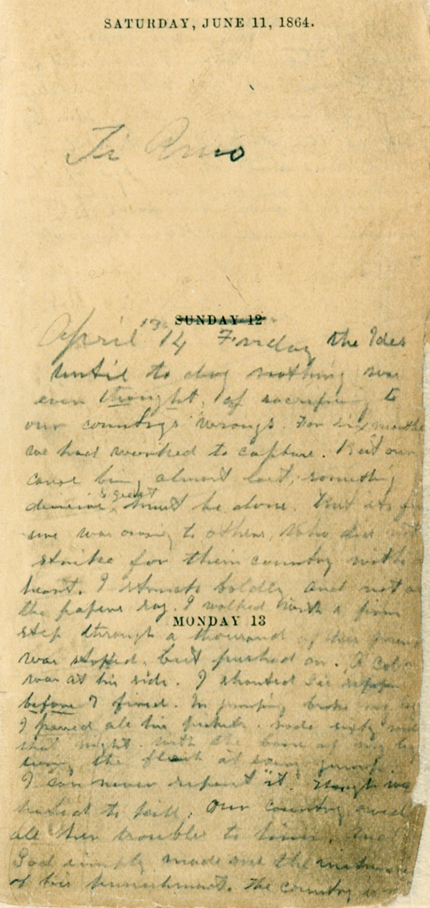 SATURDAY, JUNE 11, 1864.
Ti Amo
SUNDAY 12
April 13 14 Friday the Ides
Until to day nothing was
ever thought of sacrificing to
our country's wrongs. For six months
we had worked to capture. But our
cause being almost lost, something
decisive & great must be done. But its
was owing to others, who did not
strike for their country with a
heart. I struck boldly and not as
the papers say. I walked with a firm
step through a thousand of his friends
MONDAY 13
was stopped, but pushed on. A Col
was at his side. I shouted Sic semper
before I fired. In jumping broke my leg
I passed all his pickets. rode sixty miles
that night, with the bone of my leg
tearing the flesh at every jump.
I can never repent it, though we
hated to kill: Our country owed
all her troubles to him, and
God simply made me the instrument
of his punishment. The country is not